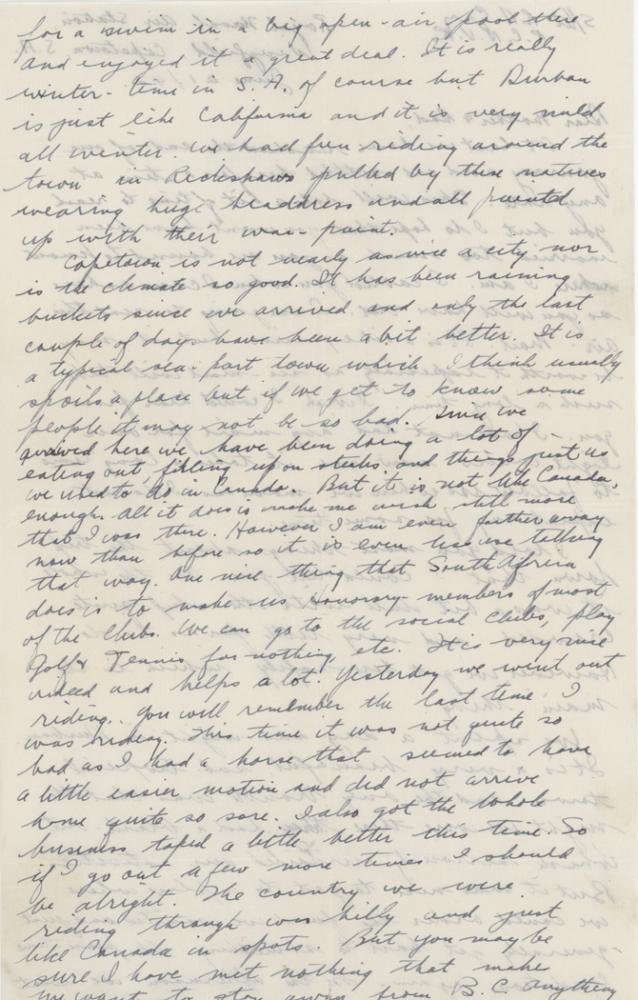 for a swim in a big open-air pool there
and enjoyed it a great deal. It is really
winter-time in S.A. of course but Durban
is just like California and it is very mild
all winter. We had fun riding around the
town in Rickshaws pulled by these natives
wearing huge headdress and all painted
up with their war-paint.
Capetown is not nearly as nice a city nor
is the climate so good. It has been raining
buckets since we arrived and only the last
couple of days have been a bit better. It is
a typical sea-port town which I think usually
spoils a place but if we get to know some
people it may not be so bad. Since we
arrived here we have been doing a lot of -
eating out, filling up on steaks and things just as
we used to do in Canada. But it is not like Canada,
enough. All it does is make me wish still more
that I was there. However I am even further away
now than before so it is even less use talking
that way. One nice thing that South Africa
does is to make us Honorary-members of most
of the Clubs. We can go to the social clubs, play
Golf & Tennis for nothing, etc. It is very nice
indeed and helps a lot. Yesterday we went out
riding. You will remember the last time I
was riding. This time it was not quite so
bad as I had a horse that seemed to have
a little easier motion and did not arrive
home quite so sore. I also got the whole
business taped a little better this time. So
if I go out a few more times I should
be alright. The country we were
riding through was hilly and just
like Canada in spots. But you may be
sure I have met nothing that makes
me want to stay away from B.C. Anything